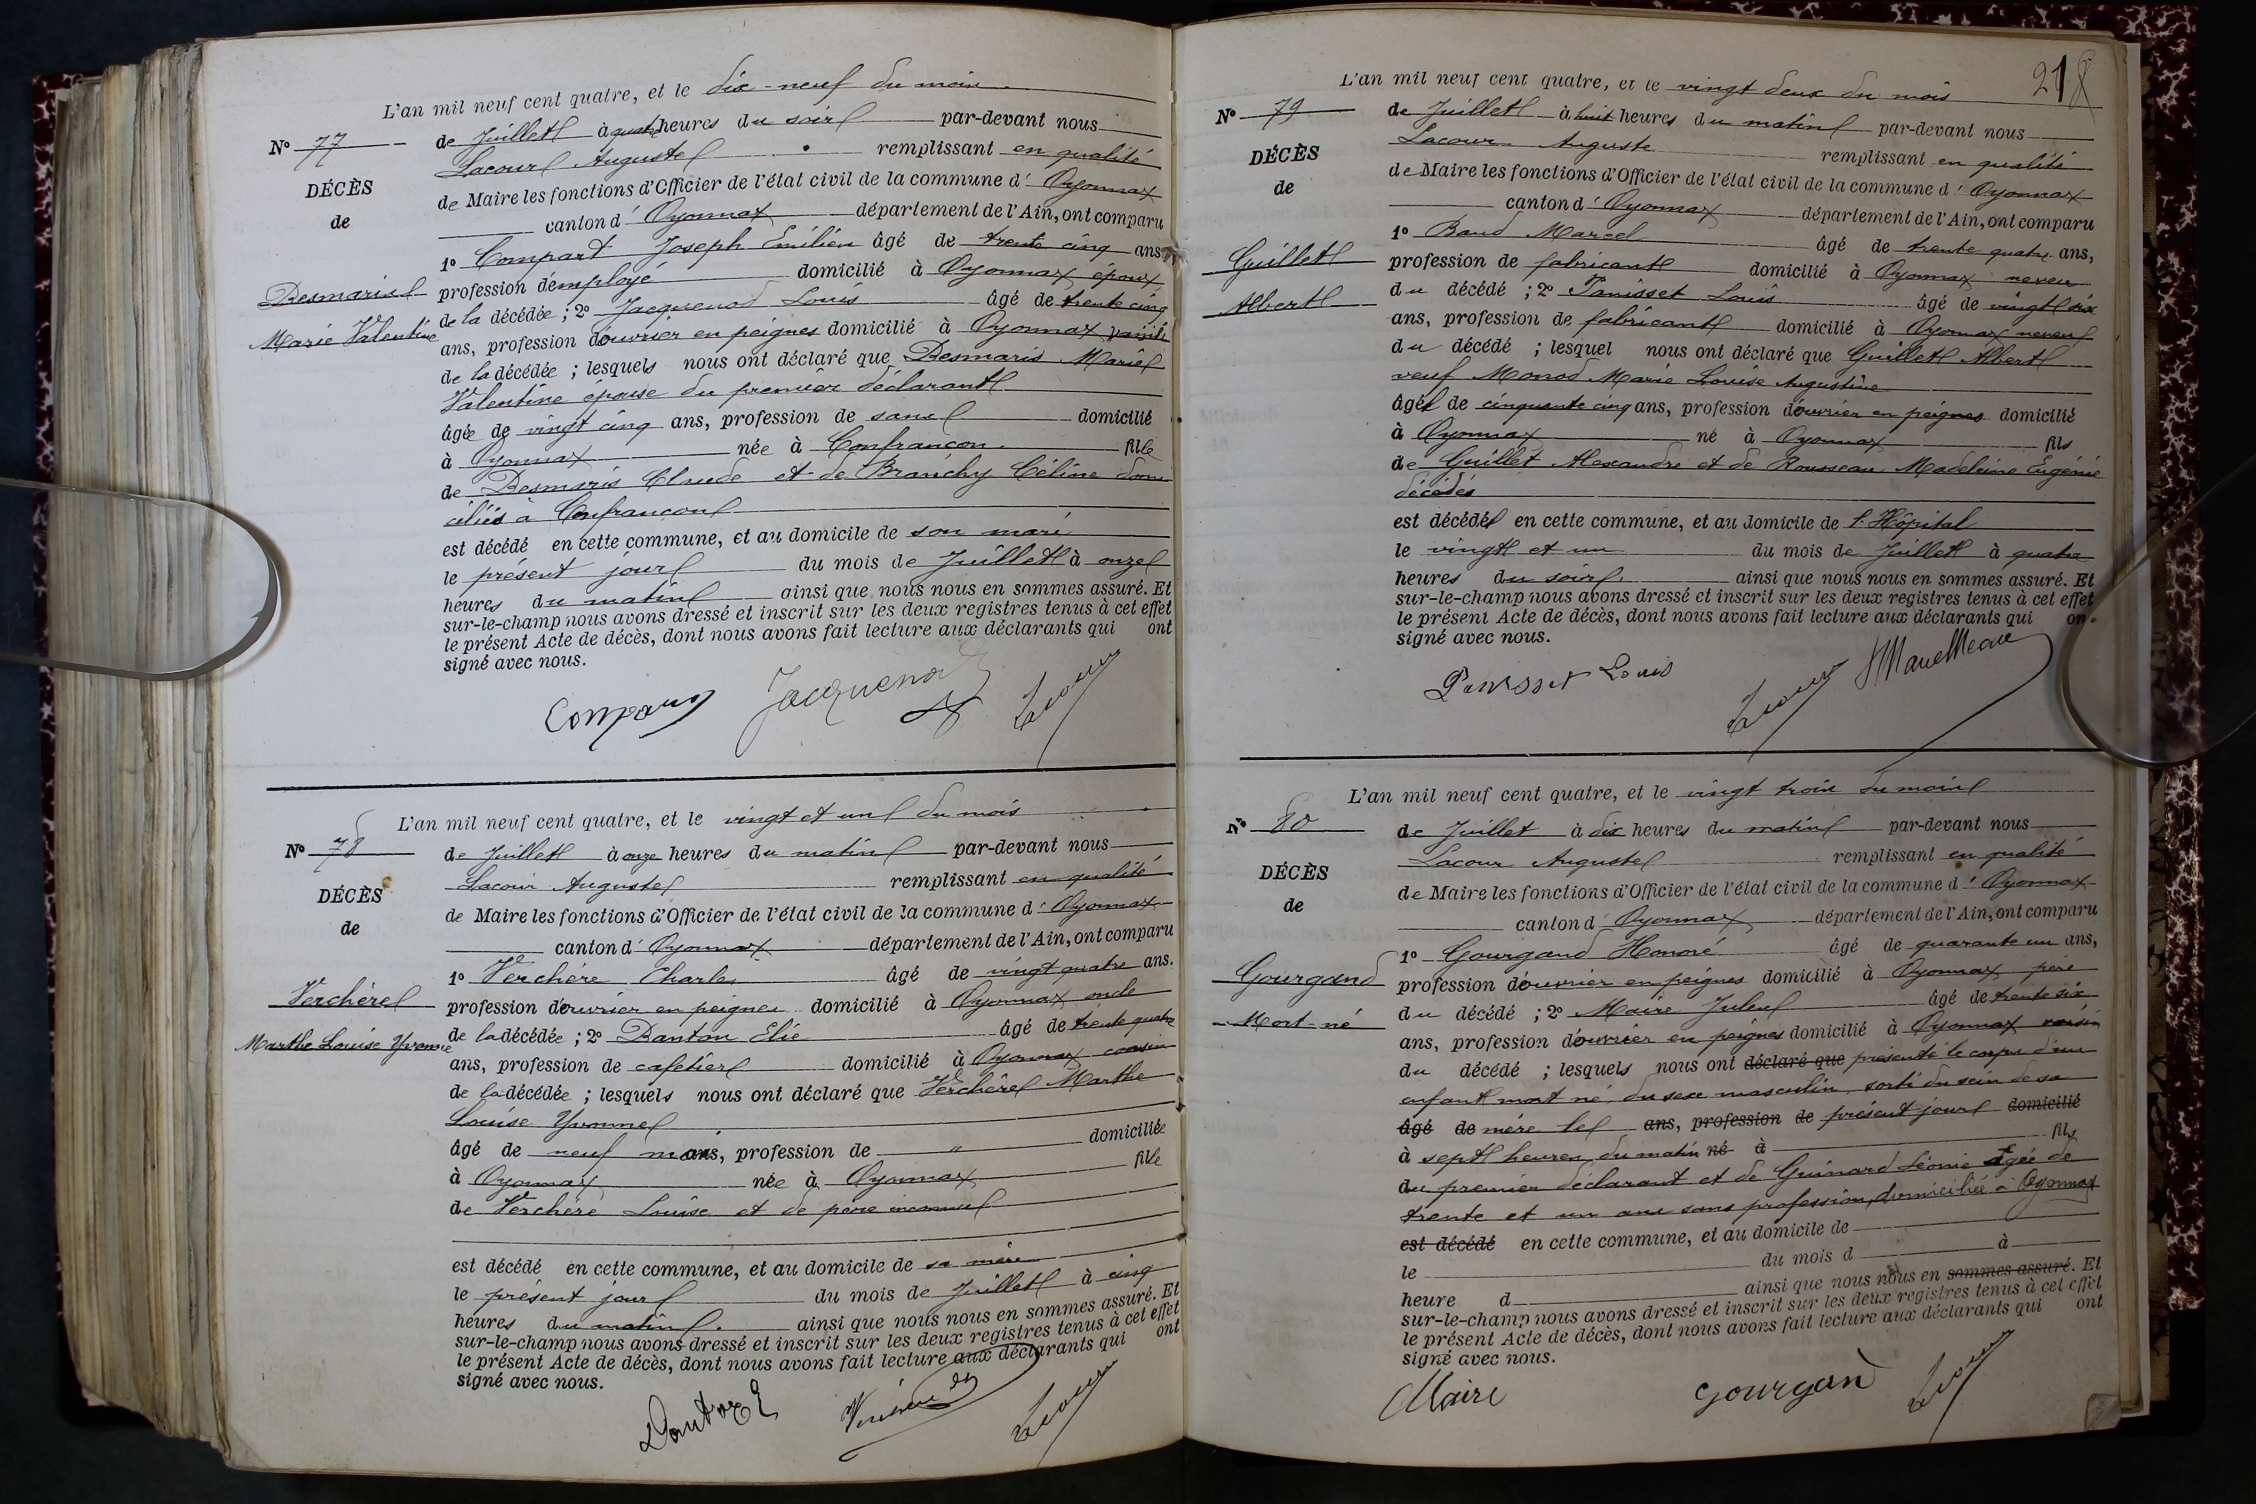 L'an mil neuf cent quatre, et le dix-neuf du mois
N° 77
de Juillet à quatre heures du soir par-devant nous
Lacour Auguste remplissant en qualité
DÉCÈS
de Maire les fonctions d'Officier de l'état civil de la commune d' Oyonnax
de
canton d' Oyonnax département de l'Ain, ont comparu
1° Compart Joseph Emilien âgé de trente cinq ans
Desmaris
profession d'employé domicilié à Oyonnax époux
Marie Valentine
de la décédée ; 2° Jacquenod Louis âgé de trente cinq
ans, profession d'ouvrier en peignes domicilié à Oyonnax
de la décédée ; lesquels nous ont déclaré que Desmaris Marie
Valentine épouse du premier déclarant
âgée de vingt cinq ans, profession de sans domicilié
à Oyonnax née à Confrançon fille
de Desmaris Claude et de Branchy Céline domi
ciliés à Confrançon
est décédé en cette commune, et au domicile de son mari
le présent jour du mois de Juillet à onze
heures du matin ainsi que nous nous en sommes assuré. Et
sur-le-champ nous avons dressé et inscrit sur les deux registres tenus à cet effet
le présent Acte de décès, dont nous avons fait lecture aux déclarants qui ont
signé avec nous.
Jacquenod Lacour
L'an mil neuf cent quatre, et le vingt et un du mois
N° 78
de Juillet à onze heures du matin par-devant nous
Lacour Auguste remplissant en qualité
DÉCÈS
de Maire les fonctions d'Officier de l'état civil de la commune d' Oyonnax
de
canton d' Oyonnax département de l'Ain, ont comparu
1° Verchère Charles âgé de vingt quatre ans.
Verchère
profession d'ouvrier en peignes domicilié à Oyonnax oncle
Marthe Louise Yvonne
de la décédée ; 2° Danton Elie âgé de trente quatre
ans, profession de cafetier domicilié à Oyonnax cousin
de la décédée ; lesquels nous ont déclaré que Verchère Marthe
Louise Yvonne
âgé de neuf mois, profession de " domiciliée
à Oyonnax née à Oyonnax fille
de Verchère Louise et de père inconnu
est décédé en cette commune, et au domicile de sa mère
le présent jour du mois de Juillet à cinq
heures du matin. ainsi que nous nous en sommes assuré. Et
sur-le-champ nous avons dressé et inscrit sur les deux registres tenus à cet effet
le présent Acte de décès, dont nous avons fait lecture aux déclarants qui ont
signé avec nous.
Danton E Lacour
218
L'an mil neuf cent quatre, et le vingt deux du mois
N° 79
de Juillet à huit heures du matin par-devant nous
Lacour Auguste remplissant en qualité
DÉCÈS
de Maire les fonctions d'Officier de l'état civil de la commune d' Oyonnax
de
canton d' Oyonnax département de l'Ain, ont comparu
1° Baud Marcel âgé de trente quatre ans,
Guillet
profession de fabricant domicilié à Oyonnax neveu
Albert
du décédé ; 2° Panisset Louis âgé de vingt six
ans, profession de fabricant domicilié à Oyonnax neveu
du décédé ; lesquel nous ont déclaré que Guillet Albert
veuf Monod Marie Louise Augustine
âgé de cinquante cinq ans, profession d'ouvrier en peignes domicilié
à Oyonnax né à Oyonnax fils
de Guillet Alexandre et de Rousseau Madeleine Eugénie
décédés
est décédé en cette commune, et au domicile de l'Hôpital
le vingt et un du mois de Juillet à quatre
heures du soir. ainsi que nous nous en sommes assuré. Et
sur-le-champ nous avons dressé et inscrit sur les deux registres tenus à cet effet
le présent Acte de décès, dont nous avons fait lecture aux déclarants qui on
signé avec nous.
Panisset Louis Lacour
L'an mil neuf cent quatre, et le vingt trois du mois
N° 80
de Juillet à dix heures du matin par-devant nous
Lacour Auguste remplissant en qualité
DÉCÈS
de Maire les fonctions d'Officier de l'état civil de la commune d' Oyonnax
de
canton d' Oyonnax département de l'Ain, ont comparu
1° Gourgand Honoré âgé de quarante un ans,
Gourgand
profession d'ouvrier en peignes domicilié à Oyonnax père
Mort-né
du décédé ; 2° Maire Jules âgé de trente six
ans, profession d'ouvrier en peignes domicilié à Oyonnax voisin
du décédé ; lesquels nous ont déclaré que présenté le corps d'un
enfant mort né, du sexe masculin, sorti du sein de sa
âgé de mère le ans, profession de présent jour domicilié
à sept heures du matin né à fils
du premier déclarant et de Guinard Léonie âgée de
trente et un ans sans profession, domiciliée à Oyonnax
est décédé en cette commune, et au domicile de
le du mois d à
heure d ainsi que nous nous en sommes assuré. Et
sur-le-champ nous avons dressé et inscrit sur les deux registres tenus à cet effet
le présent Acte de décès, dont nous avons fait lecture aux déclarants qui ont
signé avec nous.
Maire Gourgan Lacour